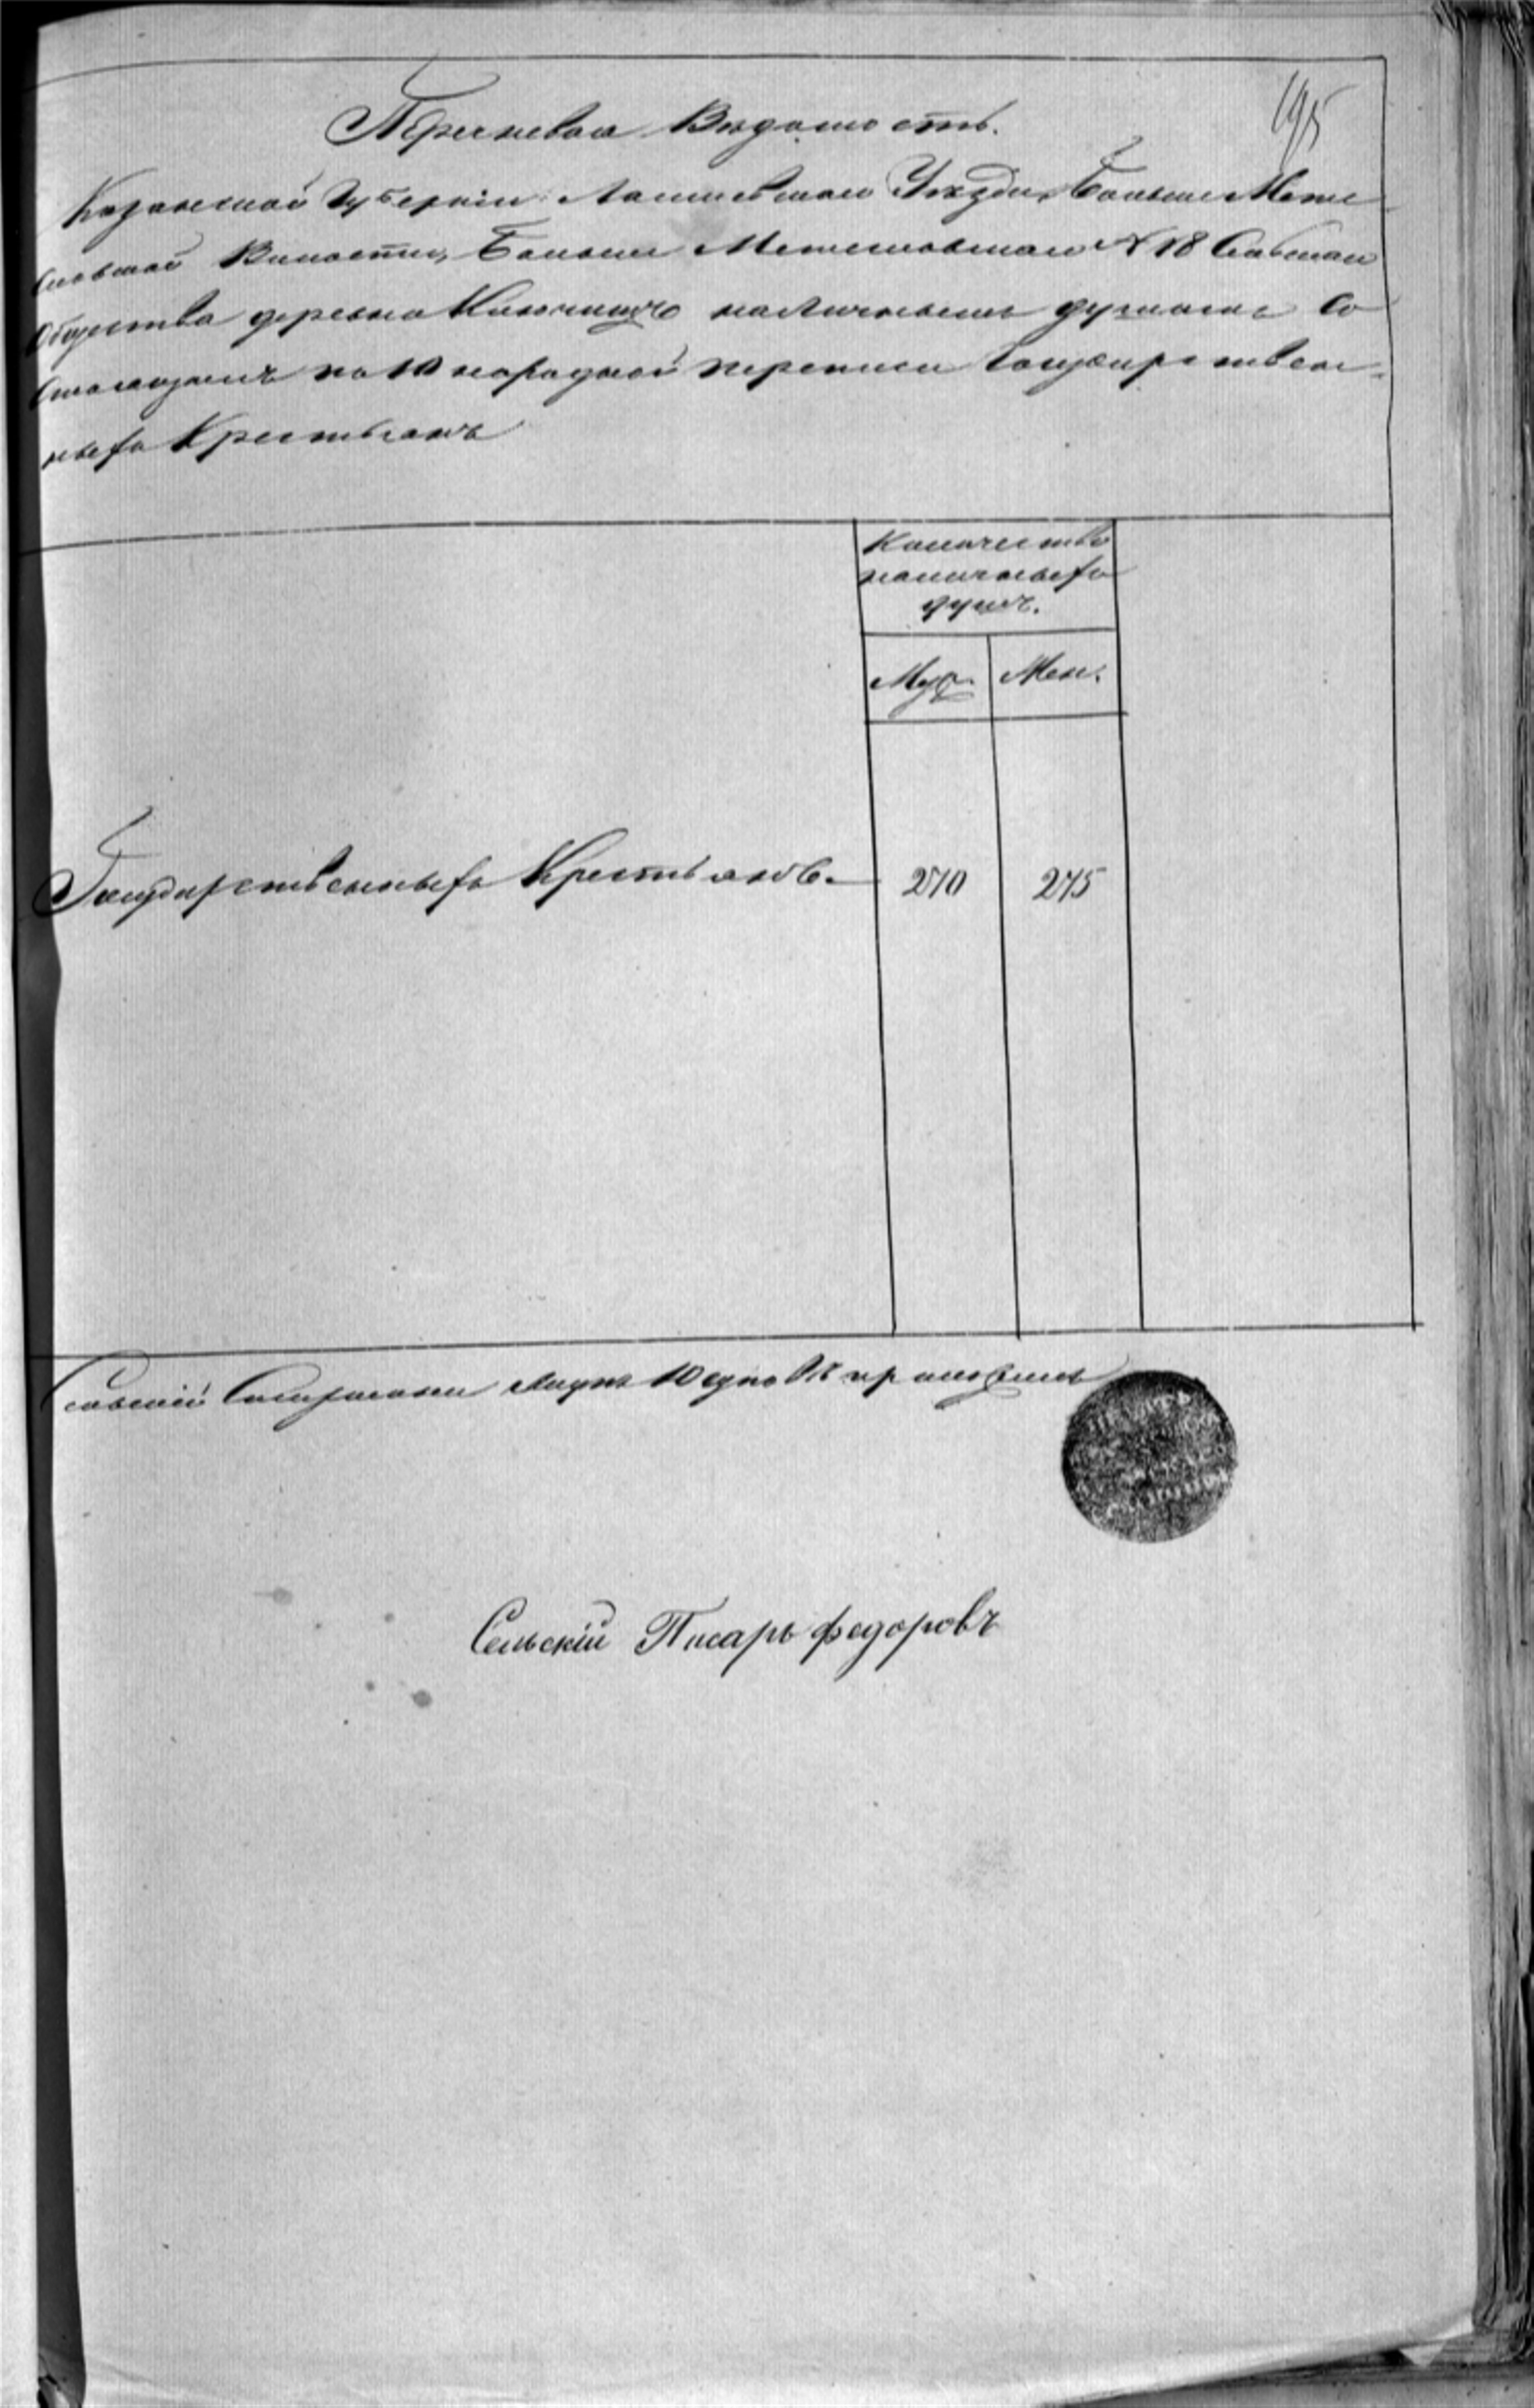 Перечневая Ведомость.
195
Казанской Губернiи Лаишевскаго Уезда, Больше Мете
сковской Волости, Больше Метесковскаго № 18 Сельскаго
Общества деревни Ключищъ наличнымъ душамъ со
стоящимъ по 10 народной переписи Государствен-
ныхъ Крестьянъ
Количество
наличныхъ
душъ.
Муж. Жен.
Государственныхъ Крестьянъ. 270 275
Сельскiй Старшина печать приложилъ
Сельскiй Писарь Федоровъ